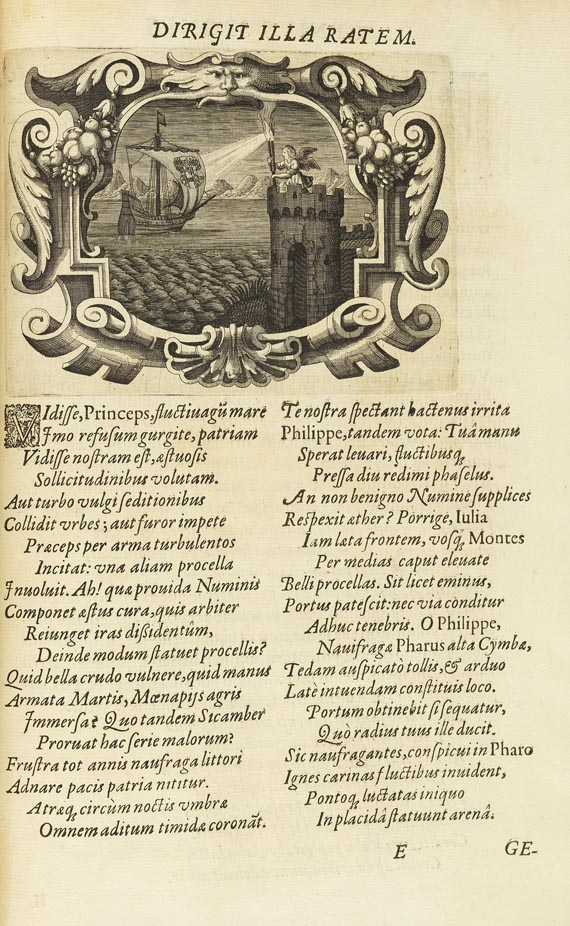 DIRIGIT ILLA RATEM.
VIdisse, Princeps, fluctiuagũ mare
Imo refusum gurgite, patriam
Vidisse nostram est, æstuosis
Sollicitudinibus volutam.
Aut turbo vulgi seditionibus
Collidit vrbes; aut furor impete
Præceps per arma turbulentos
Incitat: vnâ aliam procella
Inuoluit. Ah! quæ prouida Numinis
Componet æstus cura, quis arbiter
Reiunget iras dissidentûm,
Deinde modum statuet procellis?
Quid bella crudo vulnere, quid manus
Armata Martis, Mœnapijs agris
Immersa? Quo tandem Sicamber
Proruat hac serie malorum?
Frustra tot annis naufraga littori
Adnare pacis patria nititur.
Atræq́; circùm noctis vmbræ
Omnem aditum timidæ coronãt.
Te nostra spectant hactenus irrita
Philippe, tandem vota: Tuâ manu
Sperat leuari, fluctibusq́;
Pressa diu redimi phaselus.
An non benigno Numine supplices
Respexit æther? Porrige, Iulia
Iam læta frontem, vosq́; Montes
Per medias caput eleuate
Belli procellas. Sit licet eminus,
Portus patescit: nec via conditur
Adhuc tenebris. O Philippe,
Naufragæ Pharus alta Cymbæ,
Tedam auspicatò tollis, & arduo
Latè intuendam constituis loco.
Portum obtinebit si sequatur,
Quò radius tuus ille ducit.
Sic naufragantes, conspicui in Pharo
Ignes carinas fluctibus inuident,
Pontoq́; luctatas iniquo
In placidâ statuunt arenâ.
E
GE-